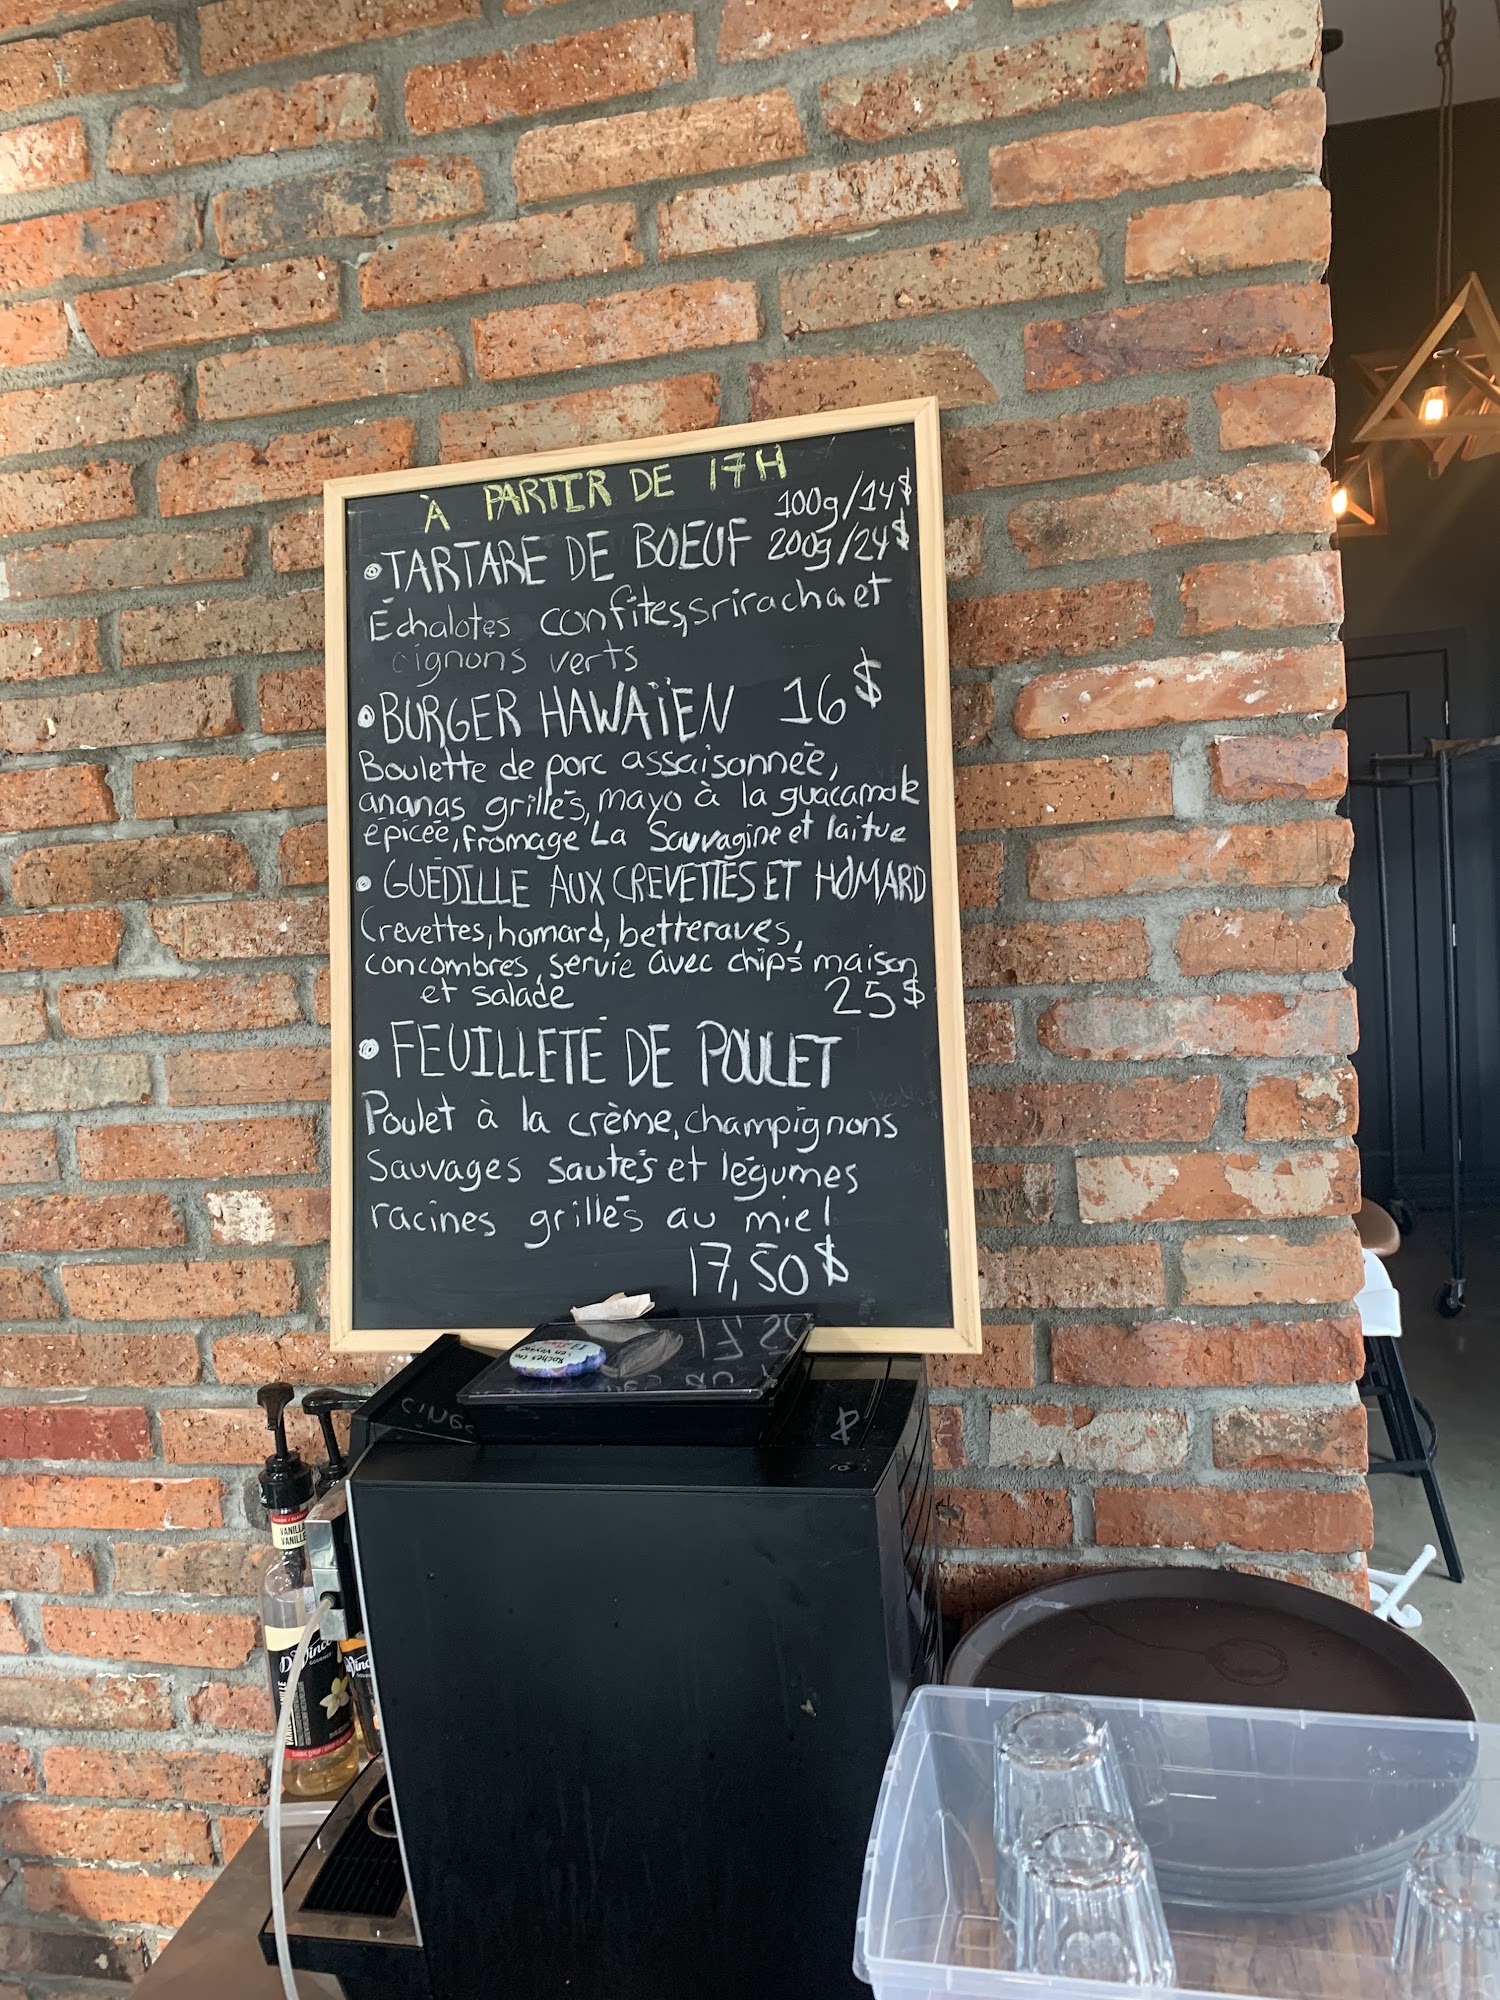 À PARTIR DE 17H
100g/14$
• TARTARE DE BOEUF 200g/24$
Échalotes confites, sriracha et
oignons verts
• BURGER HAWAÏEN 16$
Boulette de porc assaisonnée,
ananas grillés, mayo à la guacamole
épicée, fromage La Sauvagine et laitue
• GUÉDILLE AUX CREVETTES ET HOMARD
Crevettes, homard, betteraves,
concombres, servie avec chips maison
et salade 25$
• FEUILLETÉ DE POULET
Poulet à la crème, champignons
sauvages sautés et légumes
racines grillés au miel
17,50$
VANILLA
VANILLE
DaVinci
GOURMET